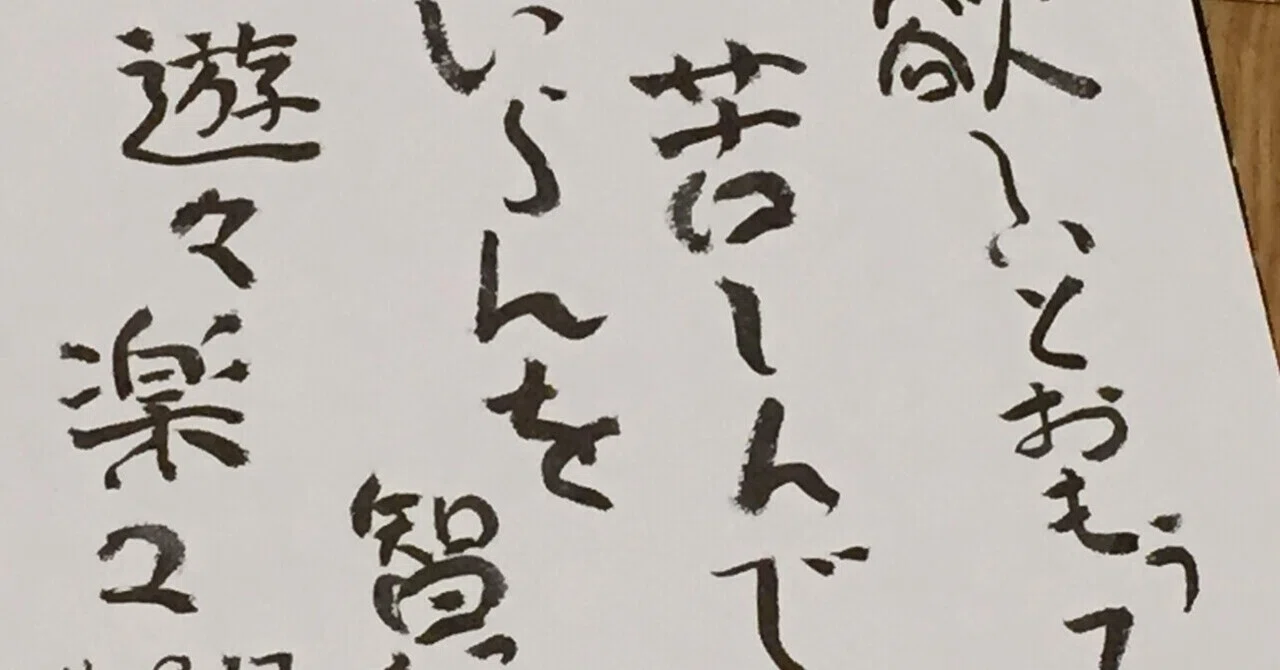 欲しいとおもうて
苦しんで
いらんを
智
遊々楽